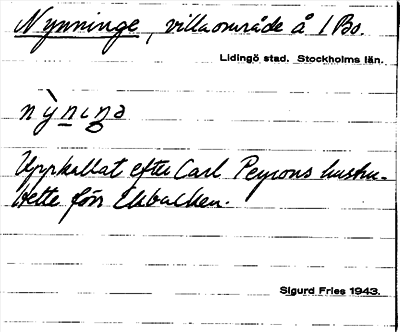 Nynninge, villaområde å 1 Bo.
Lidingö stad. Stockholms län.
nỳnıŋə
Uppkallat efter Carl Peyrons hushu-
för Ekbacken.
Sigurd Fries 1943.